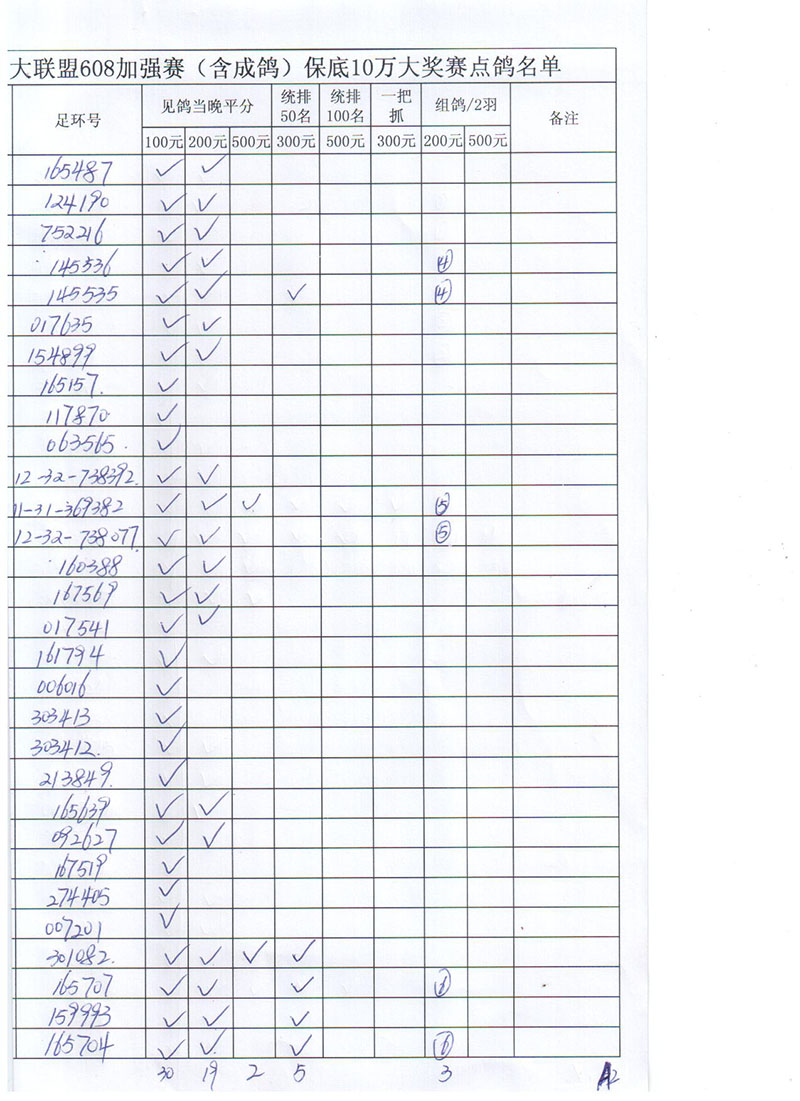 大联盟608加强赛（含成鸽）保底10万大奖赛点鸽名单
足环号 见鸽当晚平分 统排50名 统排100名 一把抓 组鸽/2羽 备注
100元 200元 500元 300元 500元 300元 200元 500元
165487 ✓ ✓
124190 ✓ ✓
752216 ✓ ✓
145536 ✓ ✓ ④
145535 ✓ ✓ ✓ ④
017635 ✓ ✓
154899 ✓ ✓
165157. ✓
117870 ✓
063565 ✓
12-32-738392. ✓ ✓
11-31-369382 ✓ ✓ ✓ ⑤
12-32-738077. ✓ ✓ ⑤
160388 ✓ ✓
167569 ✓ ✓
017541 ✓ ✓
161794 ✓
006016 ✓
303413 ✓
303412. ✓
213849. ✓
165639 ✓ ✓
092627 ✓ ✓
167519 ✓
274405 ✓
007201 ✓
301082. ✓ ✓ ✓ ✓
165707 ✓ ✓ ✓
159993 ✓ ✓ ✓
165704 ✓ ✓ ✓ ⑥
30 19 2 5 3